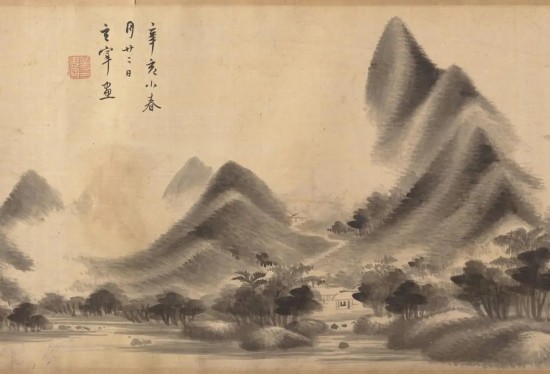 辛亥小春
月廿二日
玄宰畫